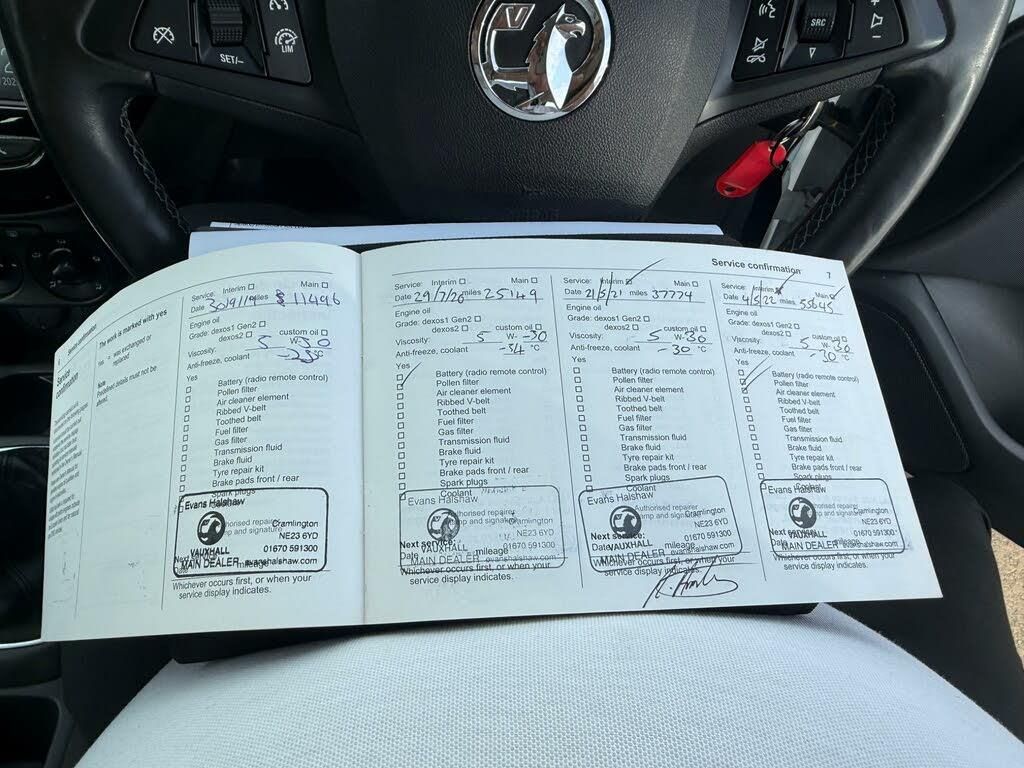 SET/-
LIM
SRC
Service confirmation
Service confirmation
The work is marked with yes
Yes = was exchanged or
replaced
Note
Predefined details must not be
Service: Interim Main
Date 30/9/19 miles 11496
Engine oil
Grade: dexos1 Gen2
dexos2 custom oil
Viscosity: 5 W-30
Anti-freeze, coolant
Yes
Battery (radio remote control)
Pollen filter
Air cleaner element
Ribbed V-belt
Toothed belt
Fuel filter
Gas filter
Transmission fluid
Brake fluid
Tyre repair kit
Brake pads front / rear
Spark plugs
Evans Halshaw
Cramlington
NE23 6YD
01670 591300
VAUXHALL
MAIN DEALER evanshalshaw.com
Whichever occurs first, or when your
service display indicates.
Service: Interim Main
Date 29/7/20 miles 25149
Engine oil
Grade: dexos1 Gen2
dexos2 custom oil
Viscosity: 5 W-30
Anti-freeze, coolant -34 °C
Yes
Battery (radio remote control)
Pollen filter
Air cleaner element
Ribbed V-belt
Toothed belt
Fuel filter
Gas filter
Transmission fluid
Brake fluid
Tyre repair kit
Brake pads front / rear
Spark plugs
Coolant
Evans Halshaw
Cramlington
NE23 6YD
01670 591300
VAUXHALL
MAIN DEALER evanshalshaw.com
Whichever occurs first, or when your
service display indicates.
Service confirmation 7
Service: Interim Main
Date 21/5/21 miles 37774
Engine oil
Grade: dexos1 Gen2
dexos2 custom oil
Viscosity: 5 W-30
Anti-freeze, coolant -30 °C
Yes
Battery (radio remote control)
Pollen filter
Air cleaner element
Ribbed V-belt
Toothed belt
Fuel filter
Gas filter
Transmission fluid
Brake fluid
Tyre repair kit
Brake pads front / rear
Spark plugs
Coolant
Evans Halshaw
Authorised repairer
stamp and signature
Cramlington
NE23 6YD
01670 591300
Next service:
Date mileage
VAUXHALL
MAIN DEALER evanshalshaw.com
Whichever occurs first, or when your
service display indicates.
Service: Interim Main
Date 4/5/22 miles 55645
Engine oil
Grade: dexos1 Gen2
dexos2 custom oil
Viscosity: 5 W-30
Anti-freeze, coolant -30 °C
Yes
Battery (radio remote control)
Pollen filter
Air cleaner element
Ribbed V-belt
Toothed belt
Fuel filter
Gas filter
Transmission fluid
Brake fluid
Tyre repair kit
Brake pads front / rear
Spark plugs
Coolant
Evans Halshaw
Cramlington
NE23 6YD
01670 591300
VAUXHALL
MAIN DEALER evanshalshaw.com
Whichever occurs first, or when your
service display indicates.